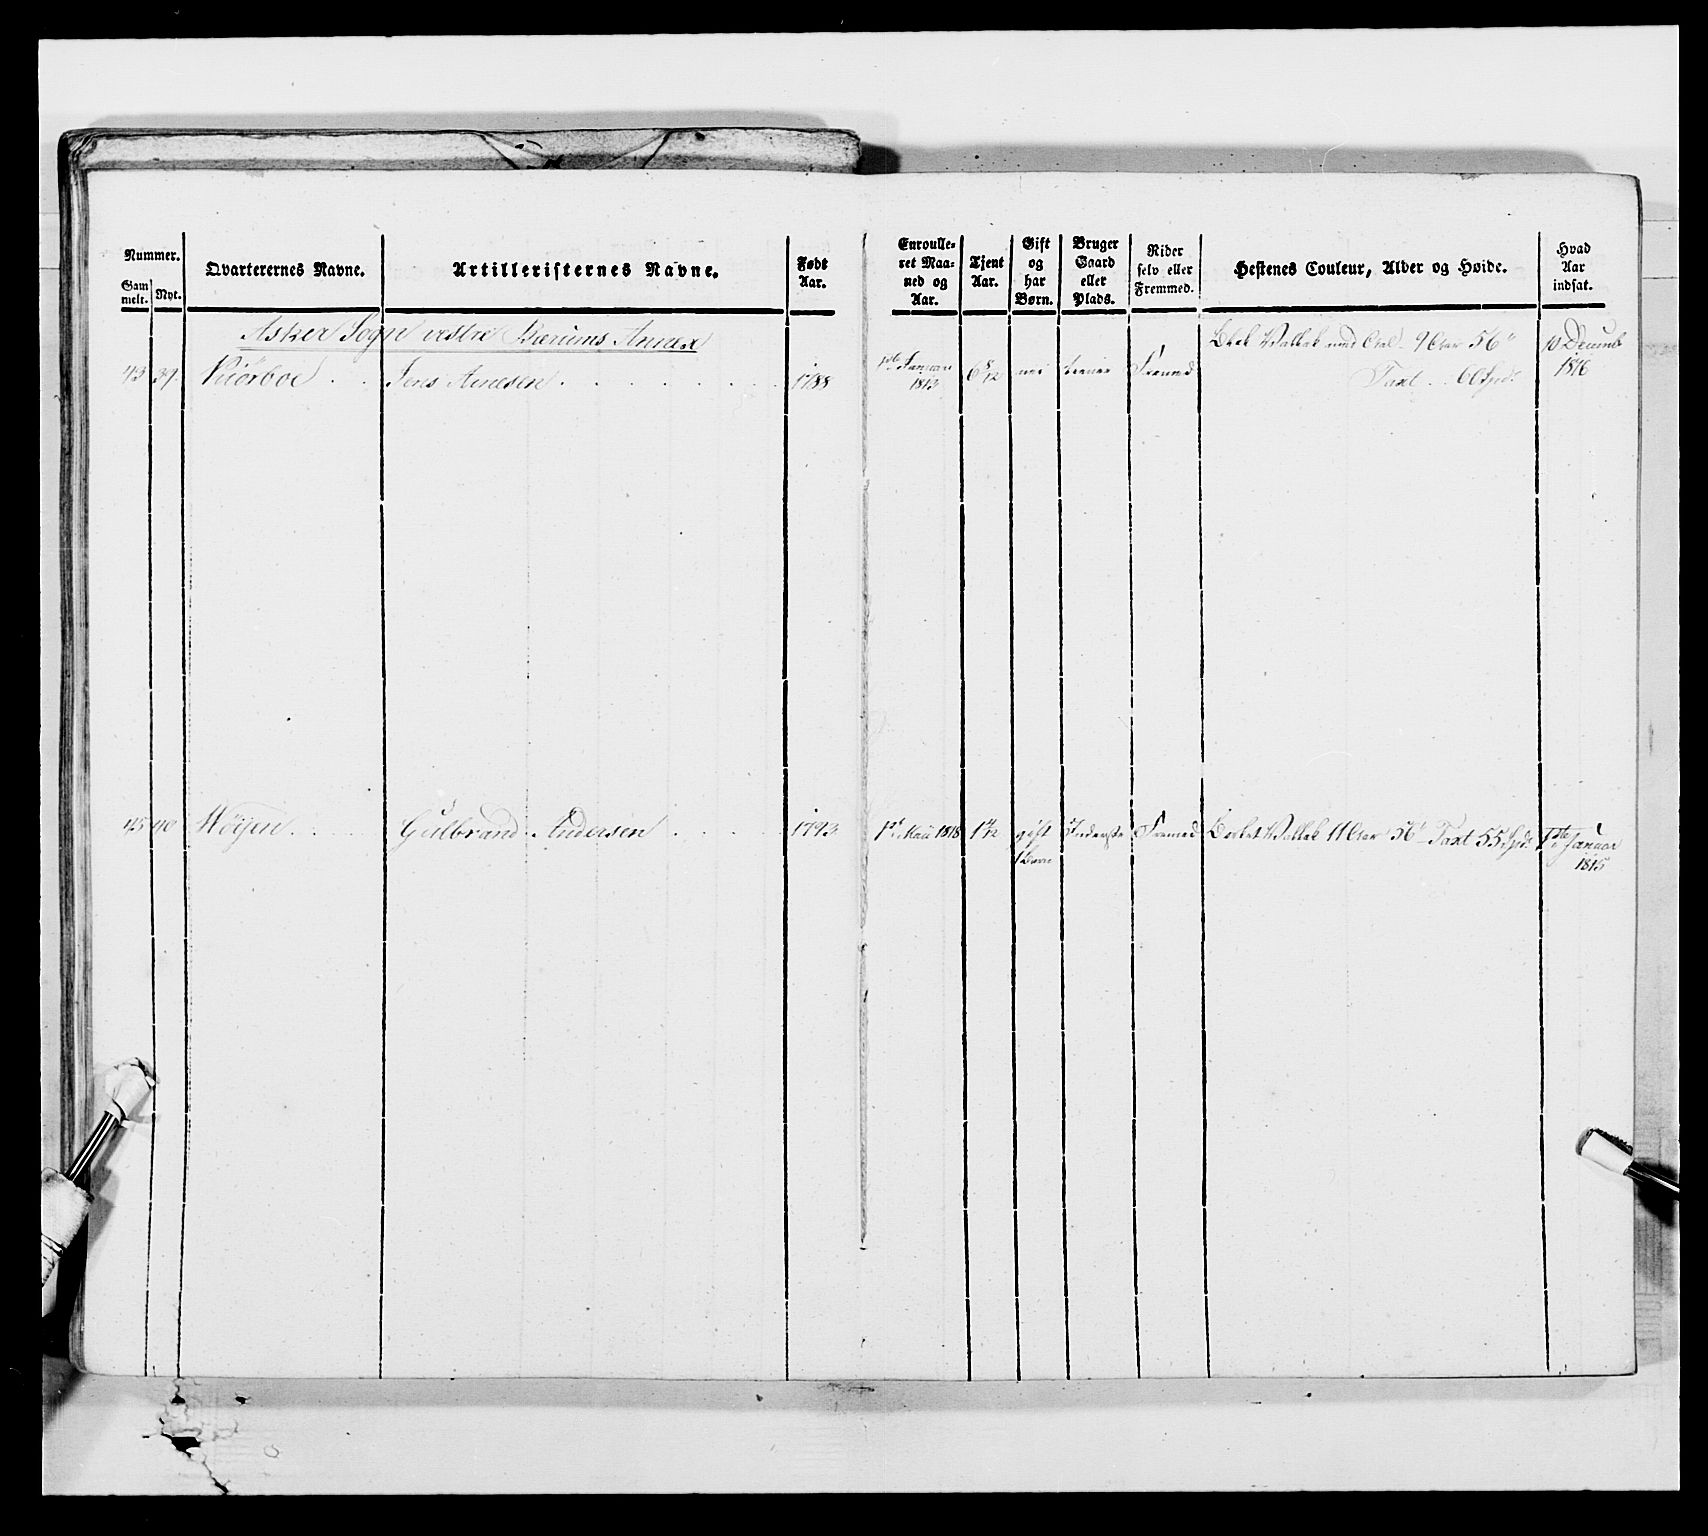 Nummer.
Gam
melt.
Nyt.
Qvarterernes Navne.
Artilleristernes Navne.
Født
Aar.
Enroulle-
ret Maa-
ned og
Aar.
Tjent
Aar.
Gift
og
har
Børn.
Bruger
Gaard
eller
Plads.
Rider
selv eller
Fremmed.
Hestenes Couleur, Alder og Høide.
Hvad
Aar
indsat.
Asker Sogn vestre Bærums Annex
43 39. Jens Arnesen 1788
Januari
1813
6 8/12 nei tiener Fremed
Vallak med 9 Aar 56"
Taxt 60 Spd.
10 Decemb
1816
45 40 Wöyen Gulbrand Andersen 1793
1st Maii 1818 1 4/12 gift
1 Barn
Inderste Fremed
Vallak 11 Aar 56" Taxt 55 Spd.
1ste Januar
1815